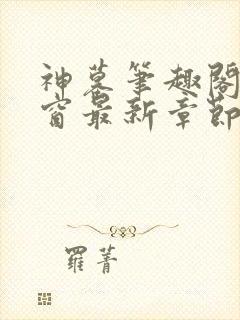 神墓筆趣閣
窗最新章節
羅菁